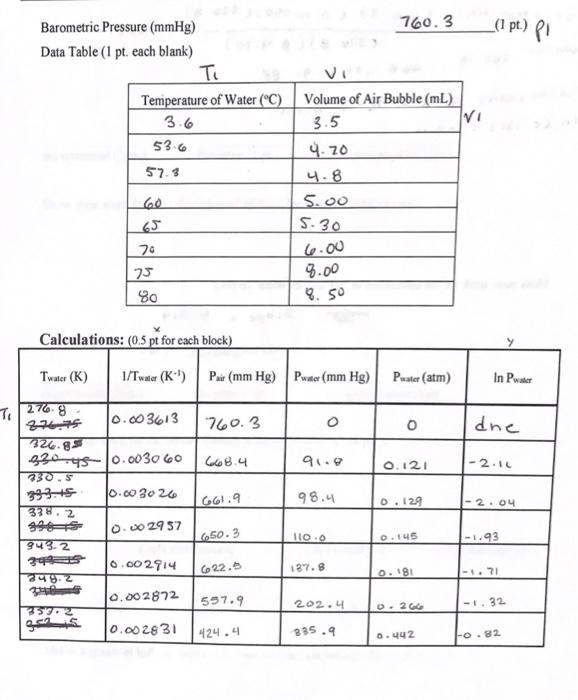 Barometric Pressure (mmHg) 760.3 (1 pt.) P1
Data Table (1 pt. each blank)
T1 V1
Temperature of Water (°C) Volume of Air Bubble (mL)
3.6 3.5 V1
53.6 4.70
57.3 4.8
60 5.00
65 5.30
70 6.00
75 8.00
80 8.50
x
Calculations: (0.5 pt for each block) y
Twater (K) 1/Twater (K-1) Pair (mm Hg) Pwater (mm Hg) Pwater (atm) ln Pwater
T1 276.8
276.75 0.003613 760.3 0 0 dne
326.8
330.45 0.003060 668.4 91.8 0.121 -2.11
330.5
333.15 0.003026 661.9 98.4 0.129 -2.04
338.2
338.15 0.002957 650.3 110.0 0.145 -1.93
343.2
343.15 0.002914 622.5 137.8 0.181 -1.71
348.2
0.002872 557.9 202.4 0.266 -1.32
353.2
353.15 0.002831 424.4 335.9 0.442 -0.82